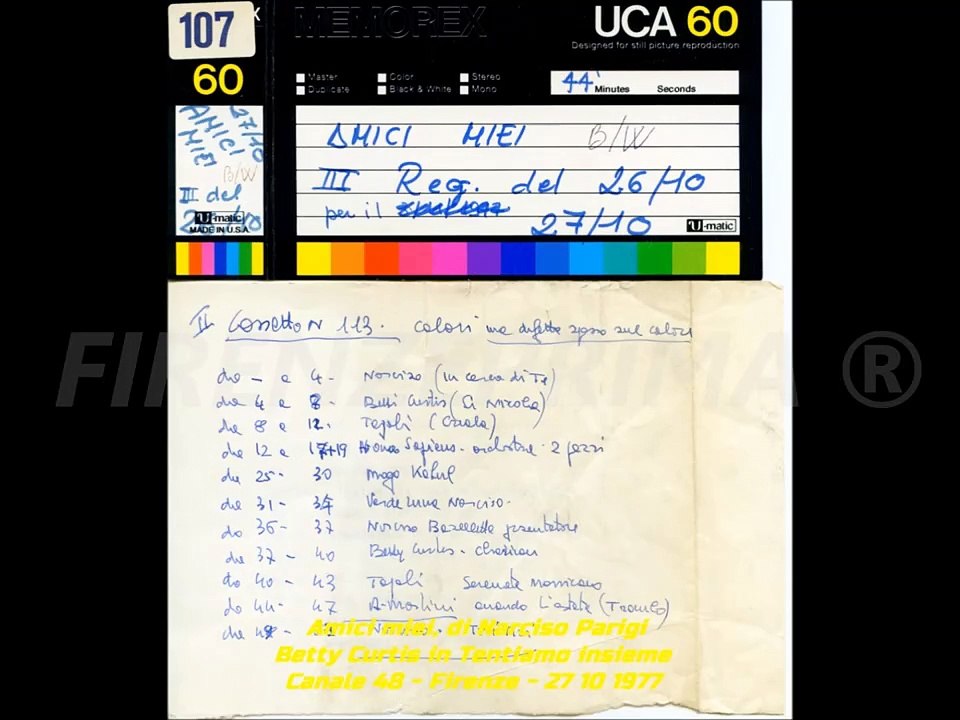 107
MEMOREX
UCA 60
Designed for still picture reproduction
60
Master
Color
Stereo
Duplicate
Black & White
Mono
44' Minutes Seconds
27/10
AMICI
MIEI
B/W
III del
U-matic
MADE IN U.S.A.
AMICI MIEI B/W
III Reg. del 26/10
per il
27/10
U-matic
II Cassetta N 113. colori ma difetto spesso sul colori
FIRENZE PRIMA ®
da - a 4- Narciso (In cerca di Te)
da 4 a 8- Betti Curtis (Li Nicola)
da 8 a 12- Tajoli (Czala)
da 12 a 17+19 Homo Sapiens - orchestra - 2 pezzi
da 25- 30 mago Kabul
da 31- 34 Verde luna Narciso-
da 36- 37 Narciso Barzelletta presentatore
da 37- 40 Betty Curtis - Chariran
da 40- 43 Tajoli Serenata
da 44- 47 A. Martini quando L'estate
da
Amici miei, di Narciso Parigi
Betty Curtis in Tentiamo insieme
Canale 48 - Firenze - 27 10 1977